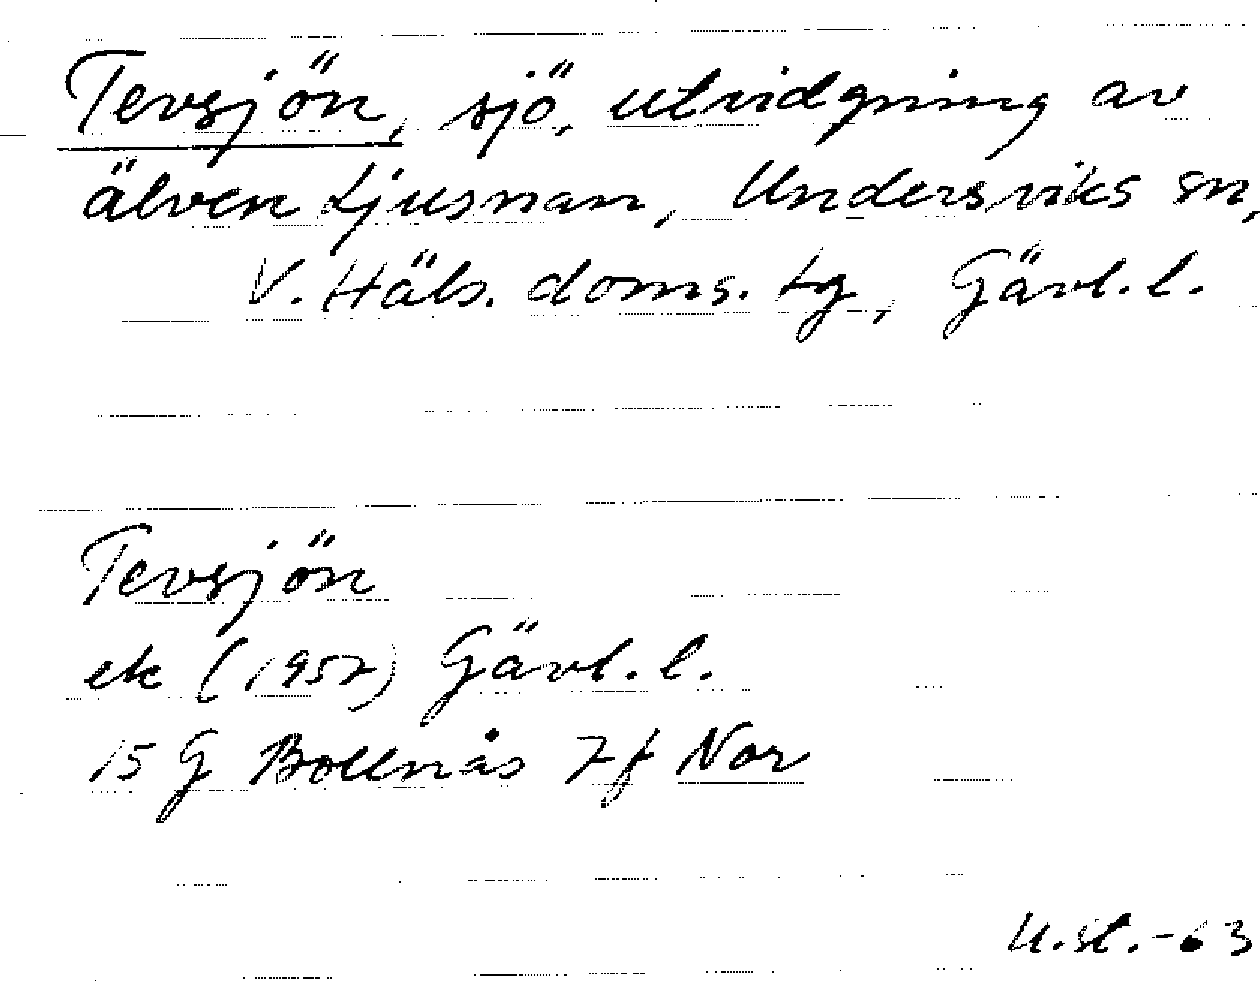 Tevsjön, sjö, utvidgning av
älven Ljusnan, Undersviks sn,
V. Häls. doms. tg, Gävl. l.
Tevsjön
ek (1957) Gävl. l.
15 G Bollnäs 7f Nor
U.st.-63